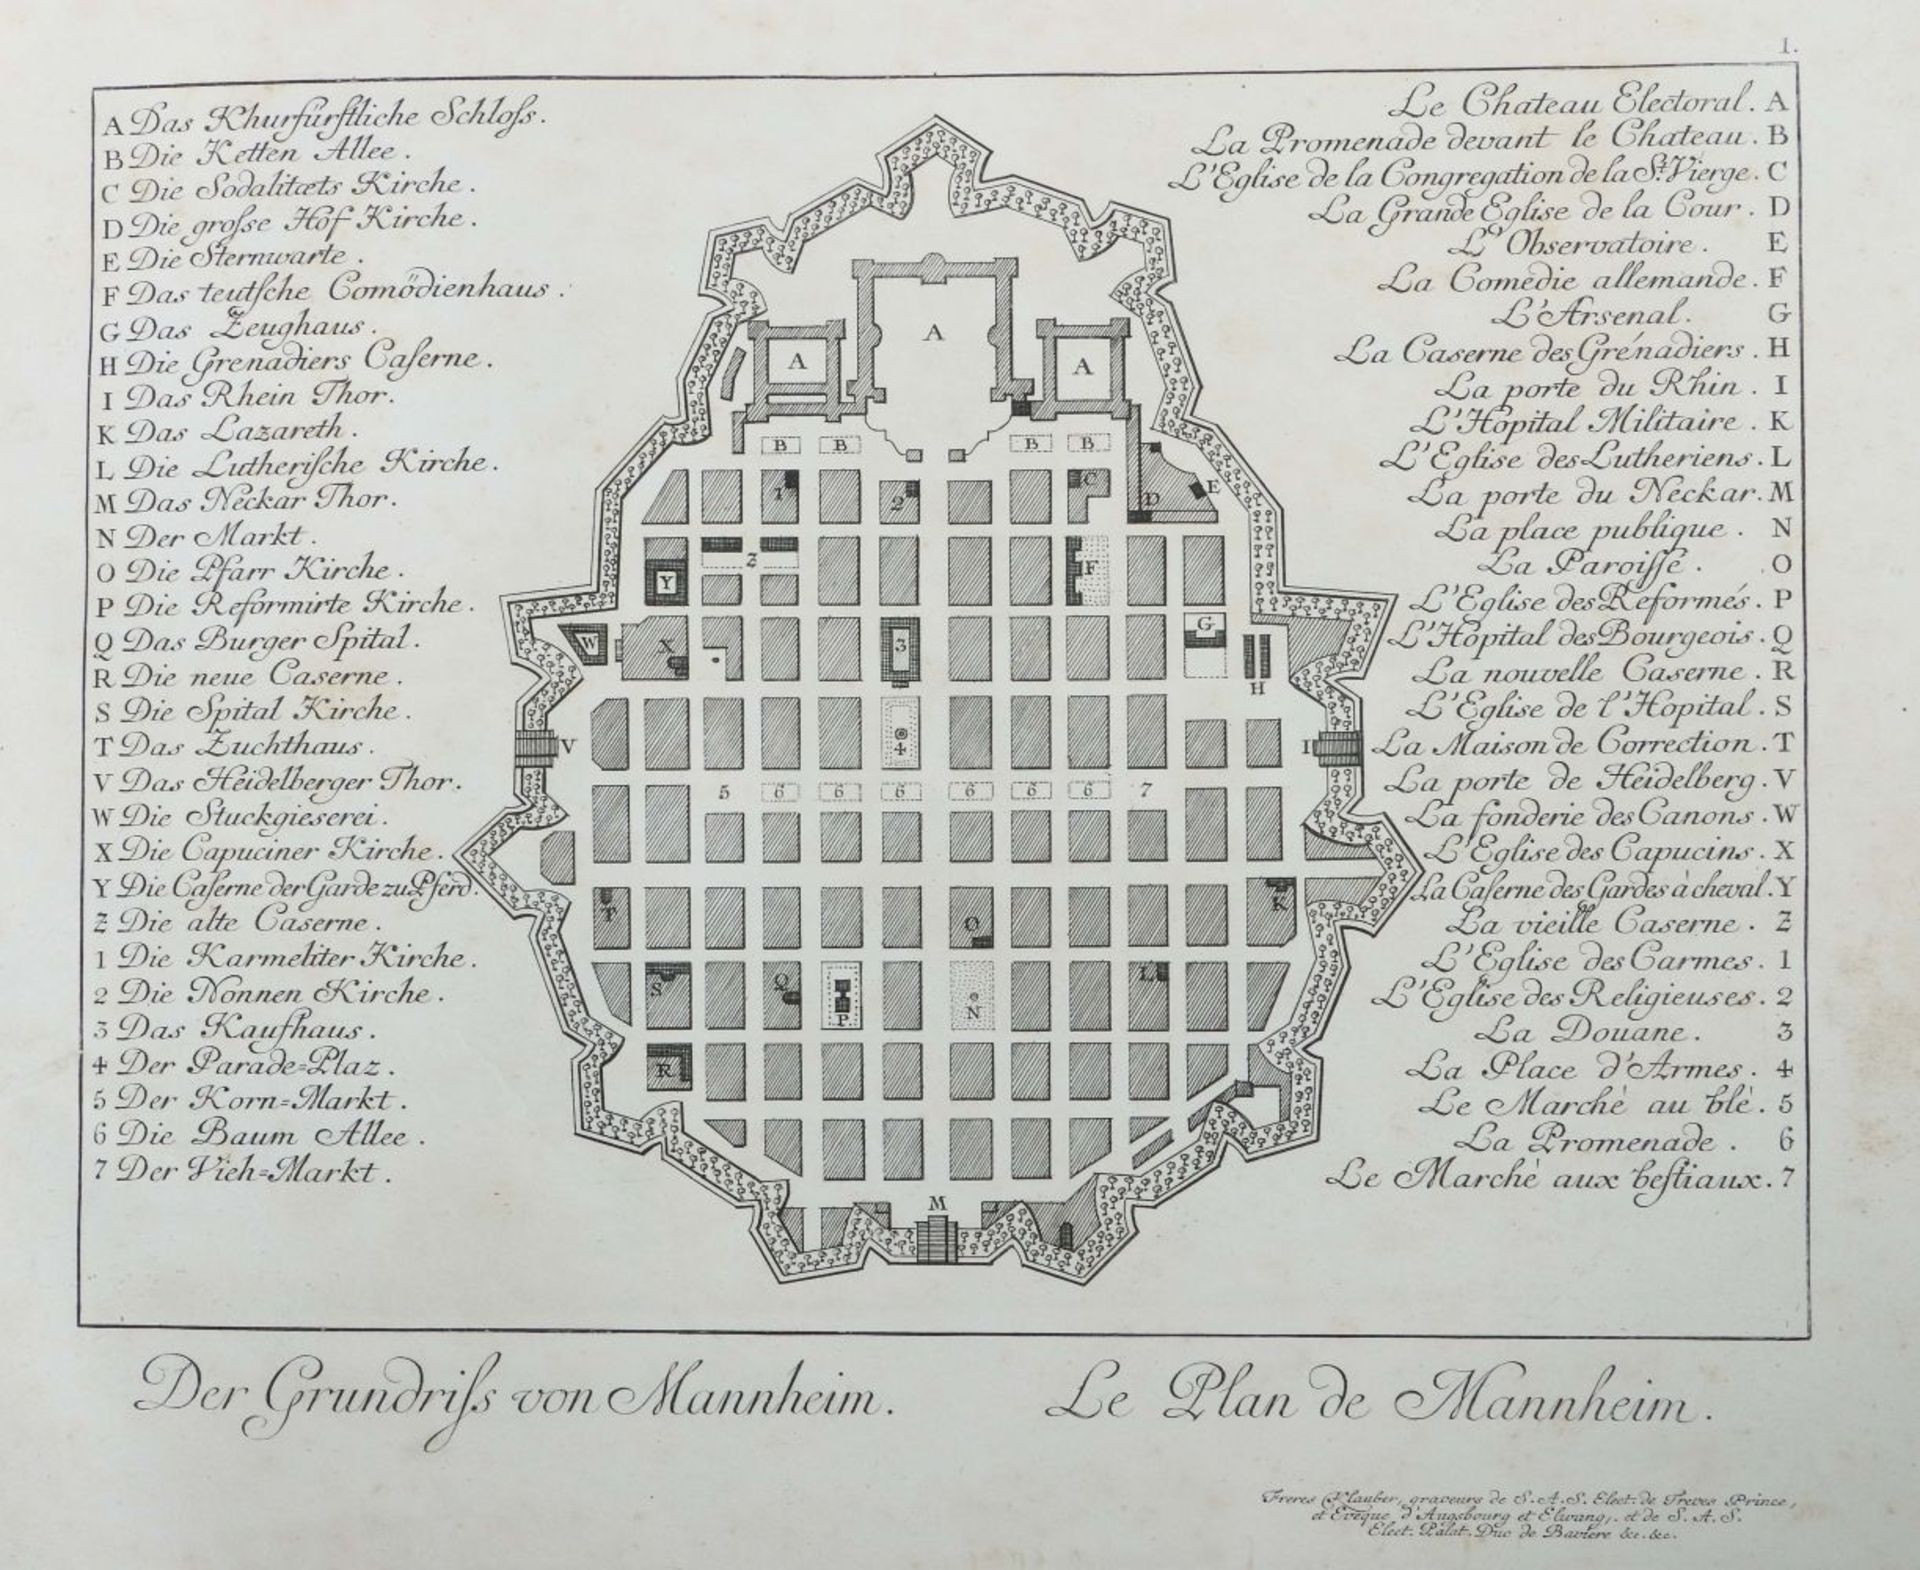 1.
A Das Khurfürstliche Schloss.
B Die Ketten Allee.
C Die Sodalitæts Kirche.
D Die grosse Hof Kirche.
E Die Sternwarte.
F Das teutsche Comödienhaus.
G Das Zeughaus.
H Die Grenadiers Caserne.
I Das Rhein Thor.
K Das Lazareth.
L Die Lutherische Kirche.
M Das Neckar Thor.
N Der Markt.
O Die Pfarr Kirche.
P Die Reformirte Kirche.
Q Das Burger Spital.
R Die neue Caserne.
S Die Spital Kirche.
T Das Zuchthaus.
V Das Heidelberger Thor.
W Die Stuckgieserei.
X Die Capuciner Kirche.
Y Die Caserne der Garde zu Pferd.
Z Die alte Caserne.
1 Die Karmeliter Kirche.
2 Die Nonnen Kirche.
3 Das Kaufhaus.
4 Der Parade=Plaz.
5 Der Korn=Markt.
6 Die Baum Allee.
7 Der Vieh=Markt.
A
A A
B B B B
1 2 C D E
Z F
Y
W X 3 G
H
4
V I
5 6 6 6 6 6 6 7
T O K
S Q P N L
R
M
Le Chateau Electoral. A
La Promenade devant le Chateau. B
L'Eglise de la Congregation de la St. Vierge. C
La Grande Eglise de la Cour. D
L'Observatoire. E
La Comedie allemande. F
L'Arsenal. G
La Caserne des Grénadiers. H
La porte du Rhin. I
L'Hopital Militaire. K
L'Eglise des Lutheriens. L
La porte du Neckar. M
La place publique. N
La Paroisse. O
L'Eglise des Reformés. P
L'Hopital des Bourgeois. Q
La nouvelle Caserne. R
L'Eglise de l'Hopital. S
La Maison de Correction. T
La porte de Heidelberg. V
La fonderie des Canons. W
L'Eglise des Capucins. X
La Caserne des Gardes à cheval. Y
La vieille Caserne. Z
L'Eglise des Carmes. 1
L'Eglise des Religieuses. 2
La Douane. 3
La Place d'Armes. 4
Le Marché au blé. 5
La Promenade. 6
Le Marché aux bestiaux. 7
Der Grundriss von Mannheim.
Le Plan de Mannheim.
Freres Klauber, graveurs de S. A. S. Elect. de Treves Prince,
et Evêque d'Augsbourg et Elwang, et de S. A. S.
Elect. Palat. Duc de Baviere &c. &c.